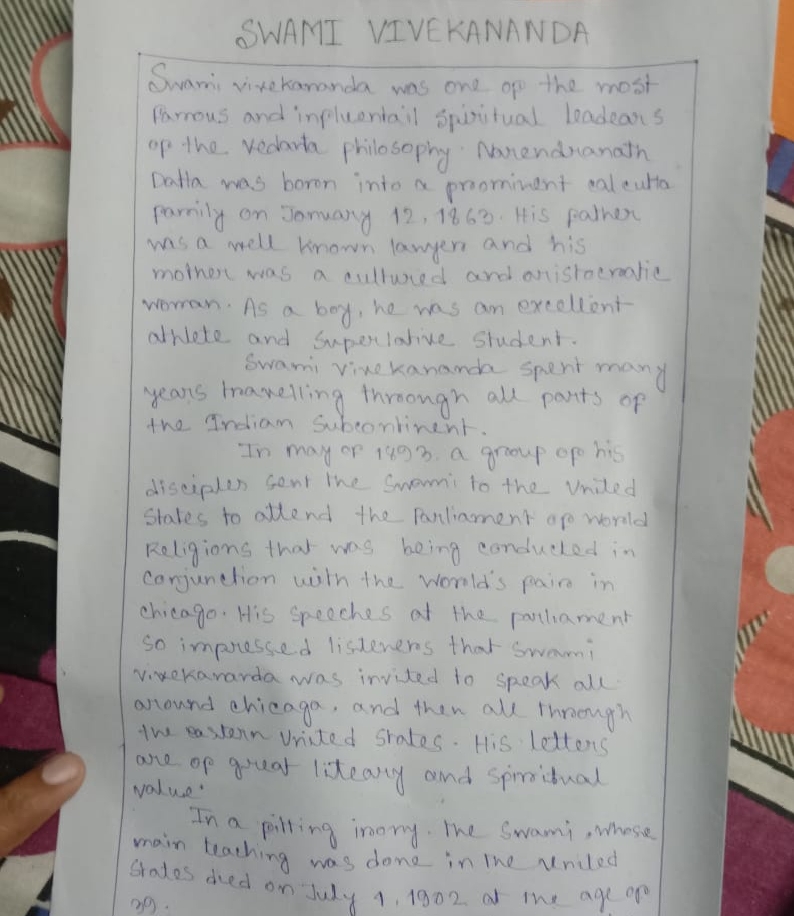 SWAMI VIVEKANANDA
Swami vivekananda was one of the most
famous and influentail spiritual leadears
of the vedanta philosophy. Narendranath
Datta was boron into a proominent calcutta
family on January 12, 1863. His father
was a well known lawyer and his
mother was a cultured and aristocratic
woman. As a boy, he was an excellent
athlete and superlative student.
Swami vivekananda spent many
years travelling through all parts of
the Indian Subcontinent.
In may of 1893, a group of his
disciples sent the Swami to the United
States to attend the Parliament of World
Religions that was being conducted in
conjunction with the World's fair in
chicago. His speeches at the parliament
so impressed listeners that Swami
vivekananda was invited to speak all
around chicago, and then all through
the eastern United States. His letters
are of great liteary and spiritual
value.
In a fitting irony. the Swami, whose
main teaching was done in the united
States died on July 4, 1902 at the age of
39.